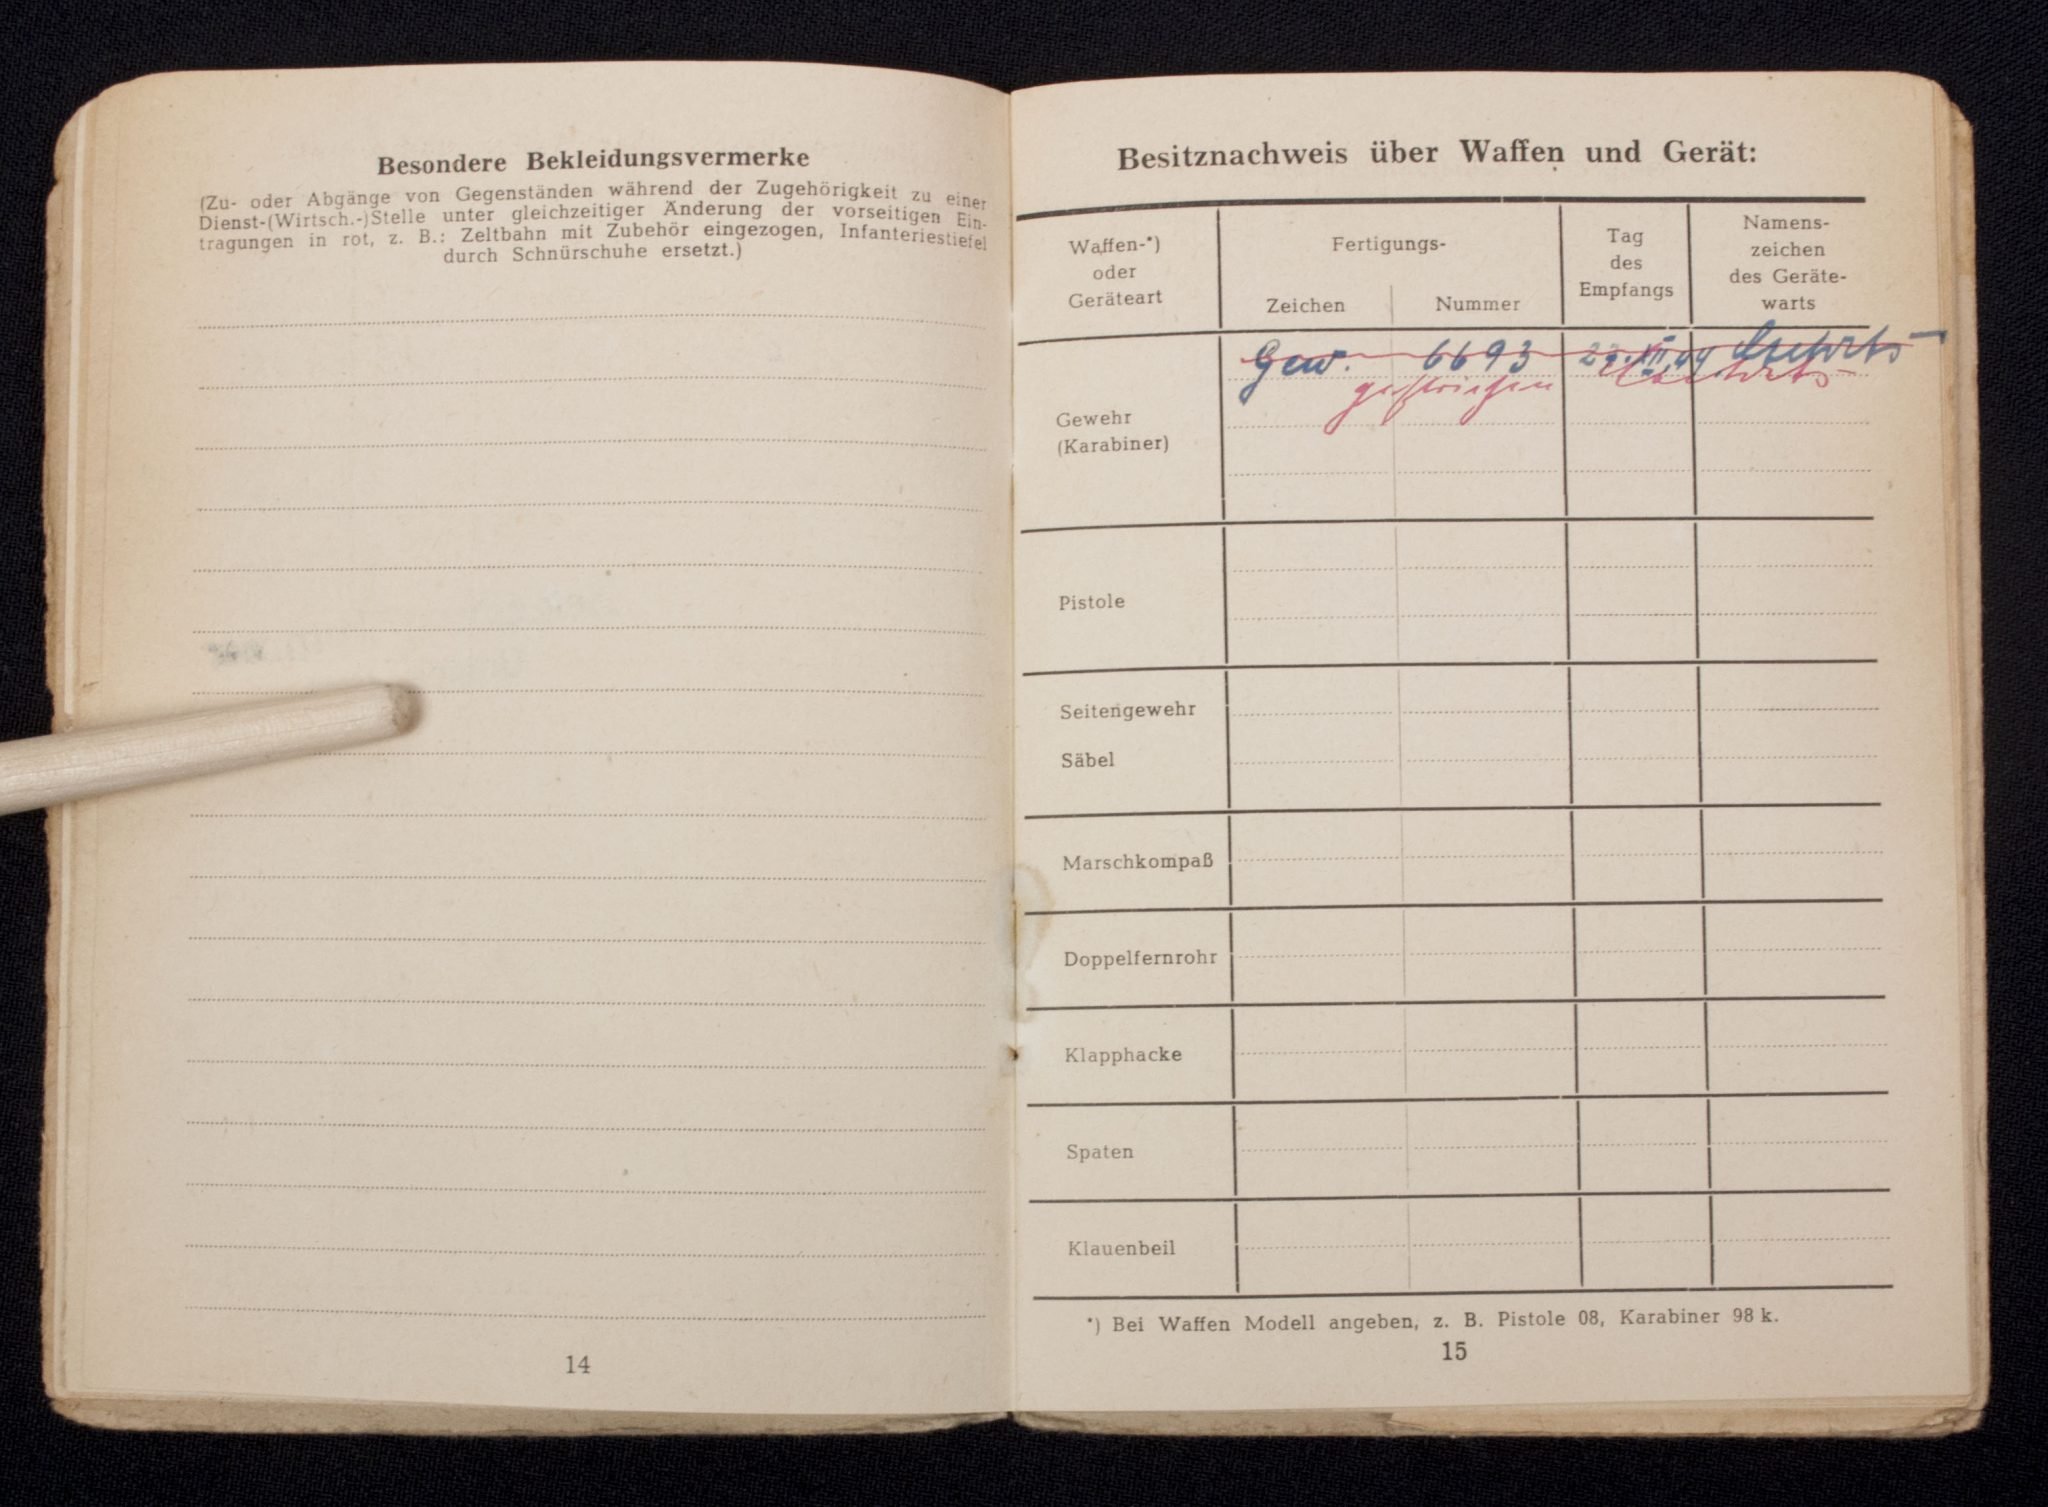 Besondere Bekleidungsvermerke
(Zu- oder Abgänge von Gegenständen während der Zugehörigkeit zu einer
Dienst-(Wirtsch.-)Stelle unter gleichzeitiger Änderung der vorseitigen Ein-
tragungen in rot, z. B.: Zeltbahn mit Zubehör eingezogen, Infanteriestiefel
durch Schnürschuhe ersetzt.)
14
Besitznachweis über Waffen und Gerät:
Waffen-*)
oder
Geräteart
Fertigungs-
Zeichen
Nummer
Tag
des
Empfangs
Namens-
zeichen
des Geräte-
warts
Gew. 6693
gestrichen
Gewehr
(Karabiner)
Pistole
Seitengewehr
Säbel
Marschkompaß
Doppelfernrohr
Klapphacke
Spaten
Klauenbeil
*) Bei Waffen Modell angeben, z. B. Pistole 08, Karabiner 98 k.
15